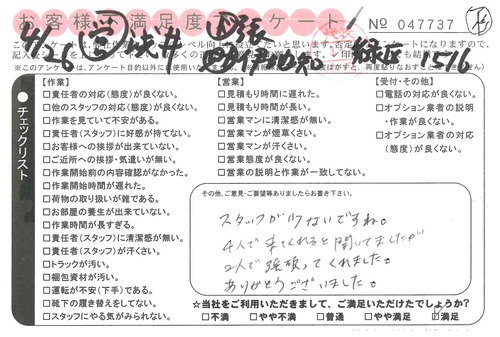 お客様不満足度アンケート! No 047737
緑区 1516
チェックリスト
【作業】
□責任者の対応(態度)が良くない。
□他のスタッフの対応(態度)が良くない。
□作業を見ていて不安がある。
□責任者(スタッフ)に好感が持てない。
□お客様への挨拶が出来ていない。
□ご近所への挨拶・気遣いが無い。
□作業開始前の内容確認がなかった。
□作業開始時間が遅れた。
□荷物の取り扱いが雑である。
□お部屋の養生が出来ていない。
□作業時間が長すぎる。
□責任者(スタッフ)に清潔感が無い。
□責任者(スタッフ)が汗くさい。
□トラックが汚い。
□梱包資材が汚い。
□運転が不安(下手)である。
□靴下の履き替えをしてない。
□スタッフにやる気がみられない。
【営業】
□見積もり時間に遅れた。
□見積もり時間が長い。
□営業マンに清潔感が無い。
□営業マンが煙草くさい。
□営業マンが汗くさい。
□営業態度が良くない。
□営業の説明と作業が一致してない。
【受付・その他】
□電話の対応が良くない。
□オプション業者の説明
・作業が良くない。
□オプション業者の対応
(態度)が良くない。
その他、ご意見・ご要望等ありましたらお書き下さい。
スタッフが少ないですね。
4人で来てくれると聞いてましたが
2人で頑張ってくれました。
ありがとうございました。
☆当社をご利用いただきまして、ご満足いただけたでしょうか?
□不満 □やや不満 □普通 □やや満足 □満足